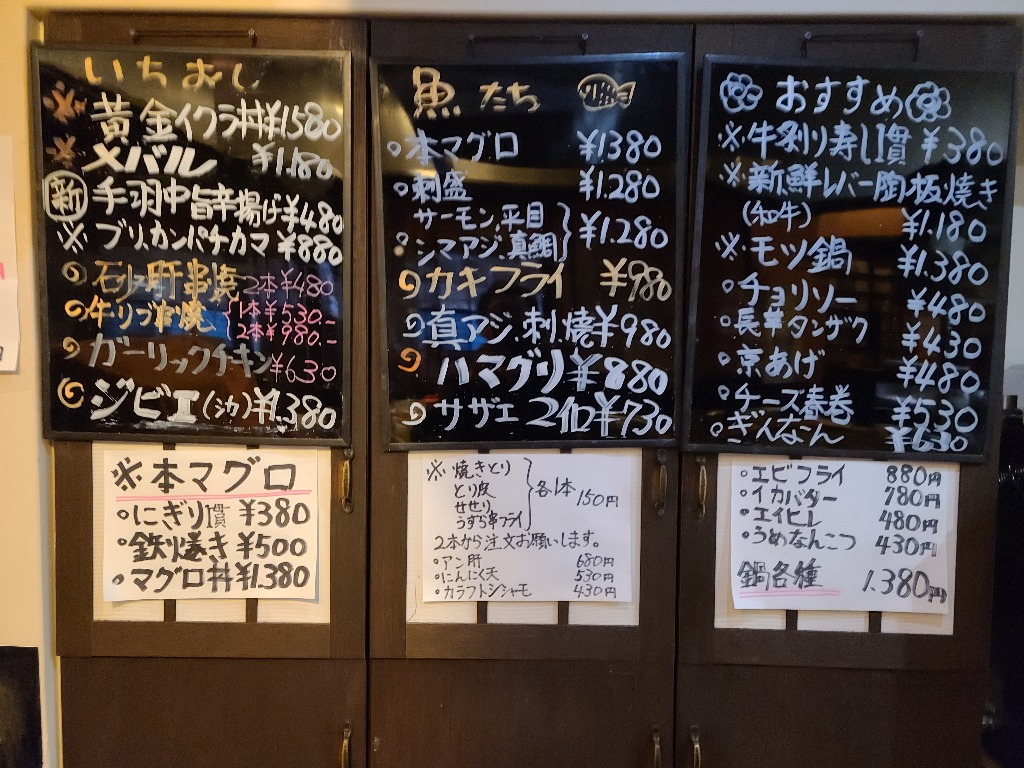 いちおし
※ 黄金イクラ丼¥1580
※ メバル ¥1.180
新 手羽中旨辛揚げ¥480
※ ブリ.カンパチカマ ¥880
石少肝串焼 2本¥480
牛リブ串焼 1本¥530-
2本¥980.-
ガーリックチキン¥630
ジビエ(シカ)¥1.380
魚たち
本マグロ ¥1380
刺盛 ¥1.280
サーモン.平目
シマアジ.真鯛 ¥1.280
カキフライ ¥980
真アジ.刺.焼¥980
ハマグリ¥880
サザエ 2ケ ¥730
おすすめ
※牛剥り寿し1貫 ¥380
※新鮮レバー陶板焼き
(和牛) ¥1.180
※モツ鍋 ¥1.380
・チョリソー ¥480
・長芋タンザク ¥430
・京あげ ¥480
・チーズ春巻 ¥530
・ぎんなん ¥630
※本マグロ
・にぎり1貫 ¥380
・鉄火巻き ¥500
・マグロ丼¥1.380
※焼きとり
とり皮
せせり
うずら串フライ
各1本 150円
2本から注文お願いします。
・アン肝 680円
・にんにく天 530円
・カラフトシシャモ 430円
・エビフライ 880円
・イカバター 780円
・エイヒレ 480円
・うめなんこつ 430円
鍋各種 1.380円